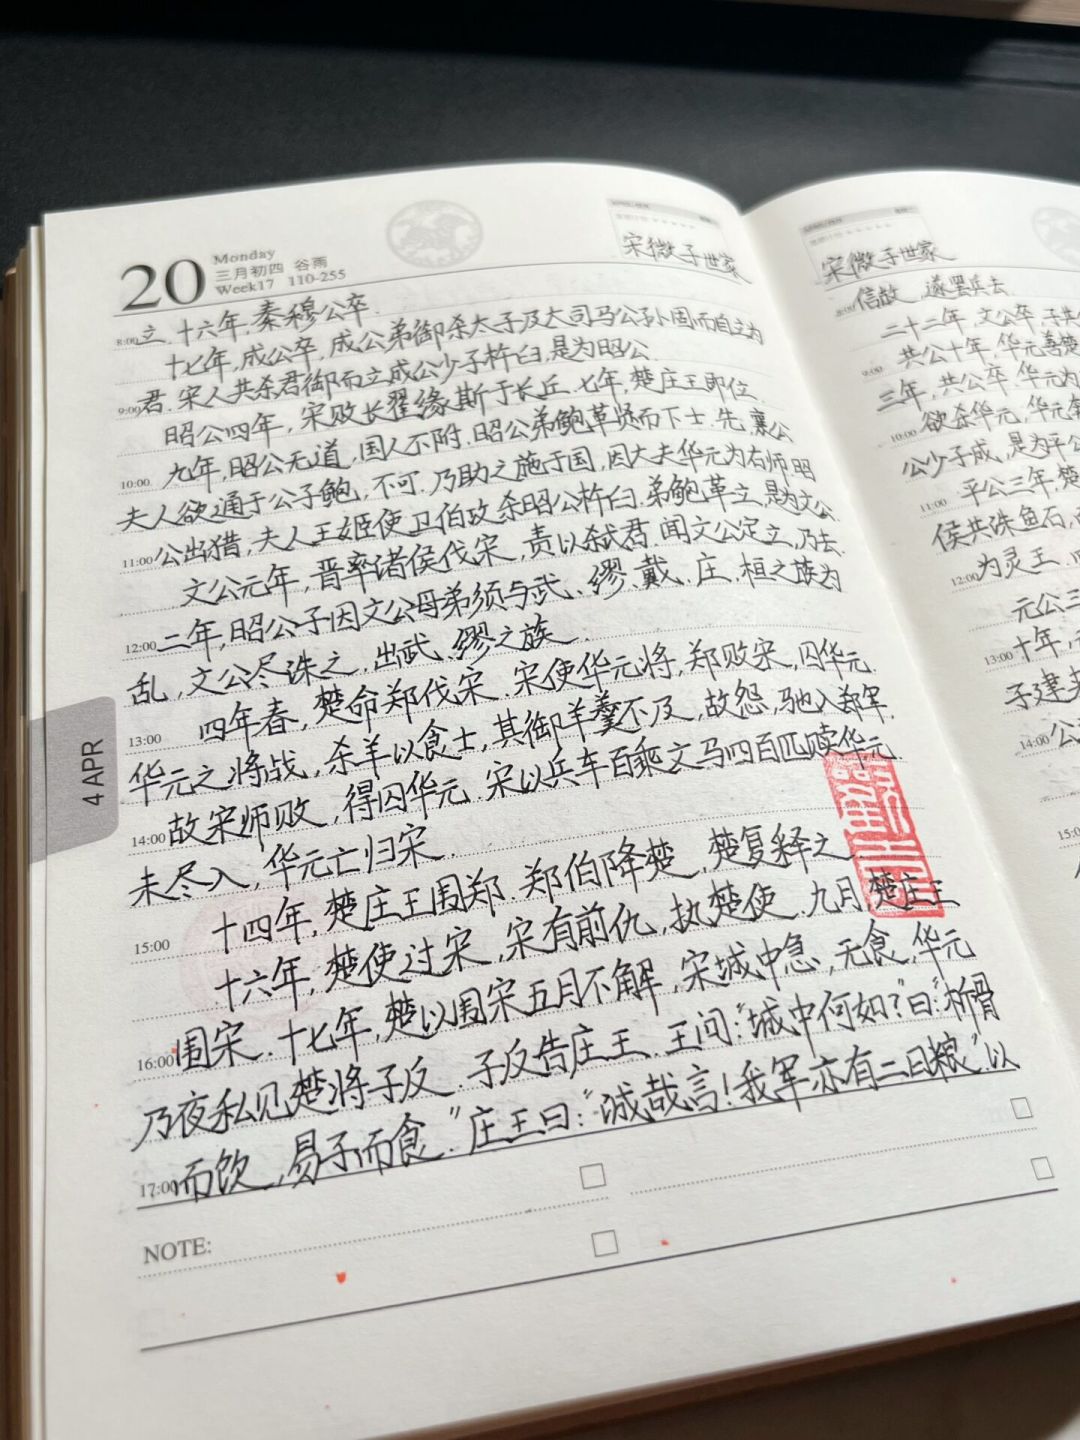 20
Monday
三月初四 谷雨
Week17 110-255
宋微子世家
8:00 立.十六年,秦穆公卒.
十七年,成公卒,成公弟御杀太子及大司马公孙固而自立为
9:00 君.宋人共杀君御而立成公少子杵臼,是为昭公.
昭公四年,宋败长翟缘斯于长丘.七年,楚庄王即位.
10:00 九年,昭公无道,国人不附.昭公弟鲍革贤而下士.先,襄公
夫人欲通于公子鲍,不可,乃助之施于国,因大夫华元为右师.昭
11:00 公出猎,夫人王姬使卫伯攻杀昭公杵臼.弟鲍革立,是为文公.
文公元年,晋率诸侯伐宋,责以弑君.闻文公定立,乃去.
12:00 二年,昭公子因文公母弟须与武、缪、戴、庄、桓之族为
乱,文公尽诛之,出武、缪之族.
13:00 四年春,楚命郑伐宋.宋使华元将,郑败宋,囚华元.
华元之将战,杀羊以食士,其御羊羹不及,故怨,驰入郑军,
14:00 故宋师败,得囚华元.宋以兵车百乘文马四百匹赎华元.
未尽入,华元亡归宋.
15:00 十四年,楚庄王围郑.郑伯降楚,楚复释之.
十六年,楚使过宋,宋有前仇,执楚使.九月,楚庄王
16:00 围宋.十七年,楚以围宋五月不解,宋城中急,无食,华元
乃夜私见楚将子反.子反告庄王.王问:“城中何如?”曰:“析骨
17:00 而饮,易子而食.”庄王曰:“诚哉言!我军亦有二日粮”以
NOTE:
4 APR
宋微子世家
8:00 信故,遂罢兵去.
二十二年,文公卒,子共
9:00 共公十年,华元善楚
三年,共公卒.华元为
10:00 欲杀华元,华元
公少子成,是为平公
11:00 平公三年,楚
侯共诛鱼石,
12:00 为灵王.
元公三
13:00 十年,
子建来
14:00 公
15:0